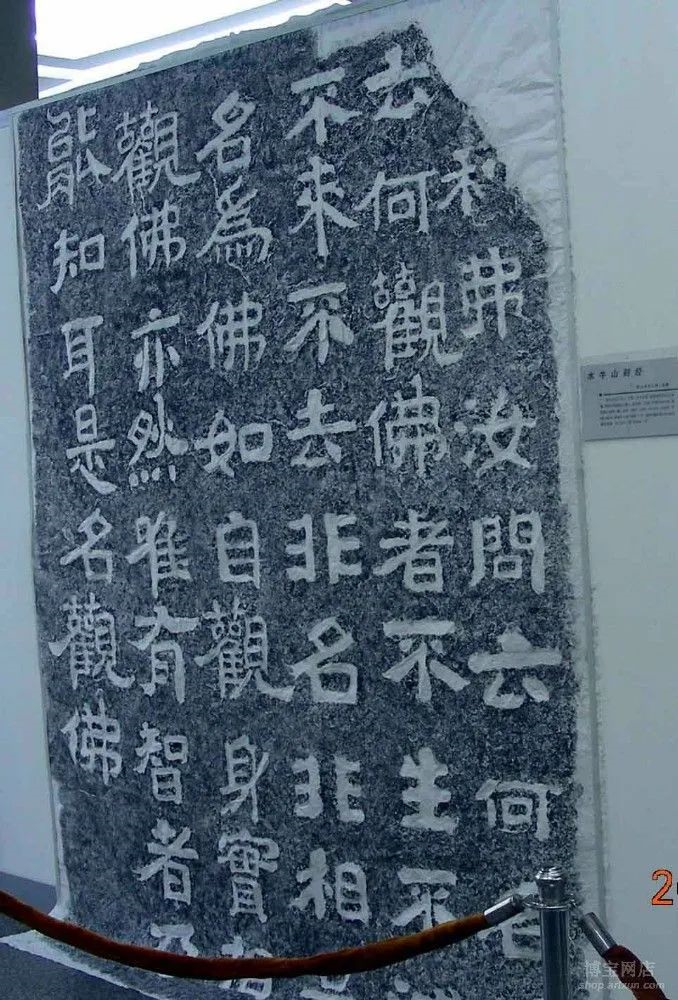 利弗汝問云何名
云何觀佛者不生不
不來不去非名非相是
名為佛如自觀身實相
觀佛亦然唯有智者乃
能知耳是名觀佛
水牛山刻经
2
博宝网店
shop.artxun.com